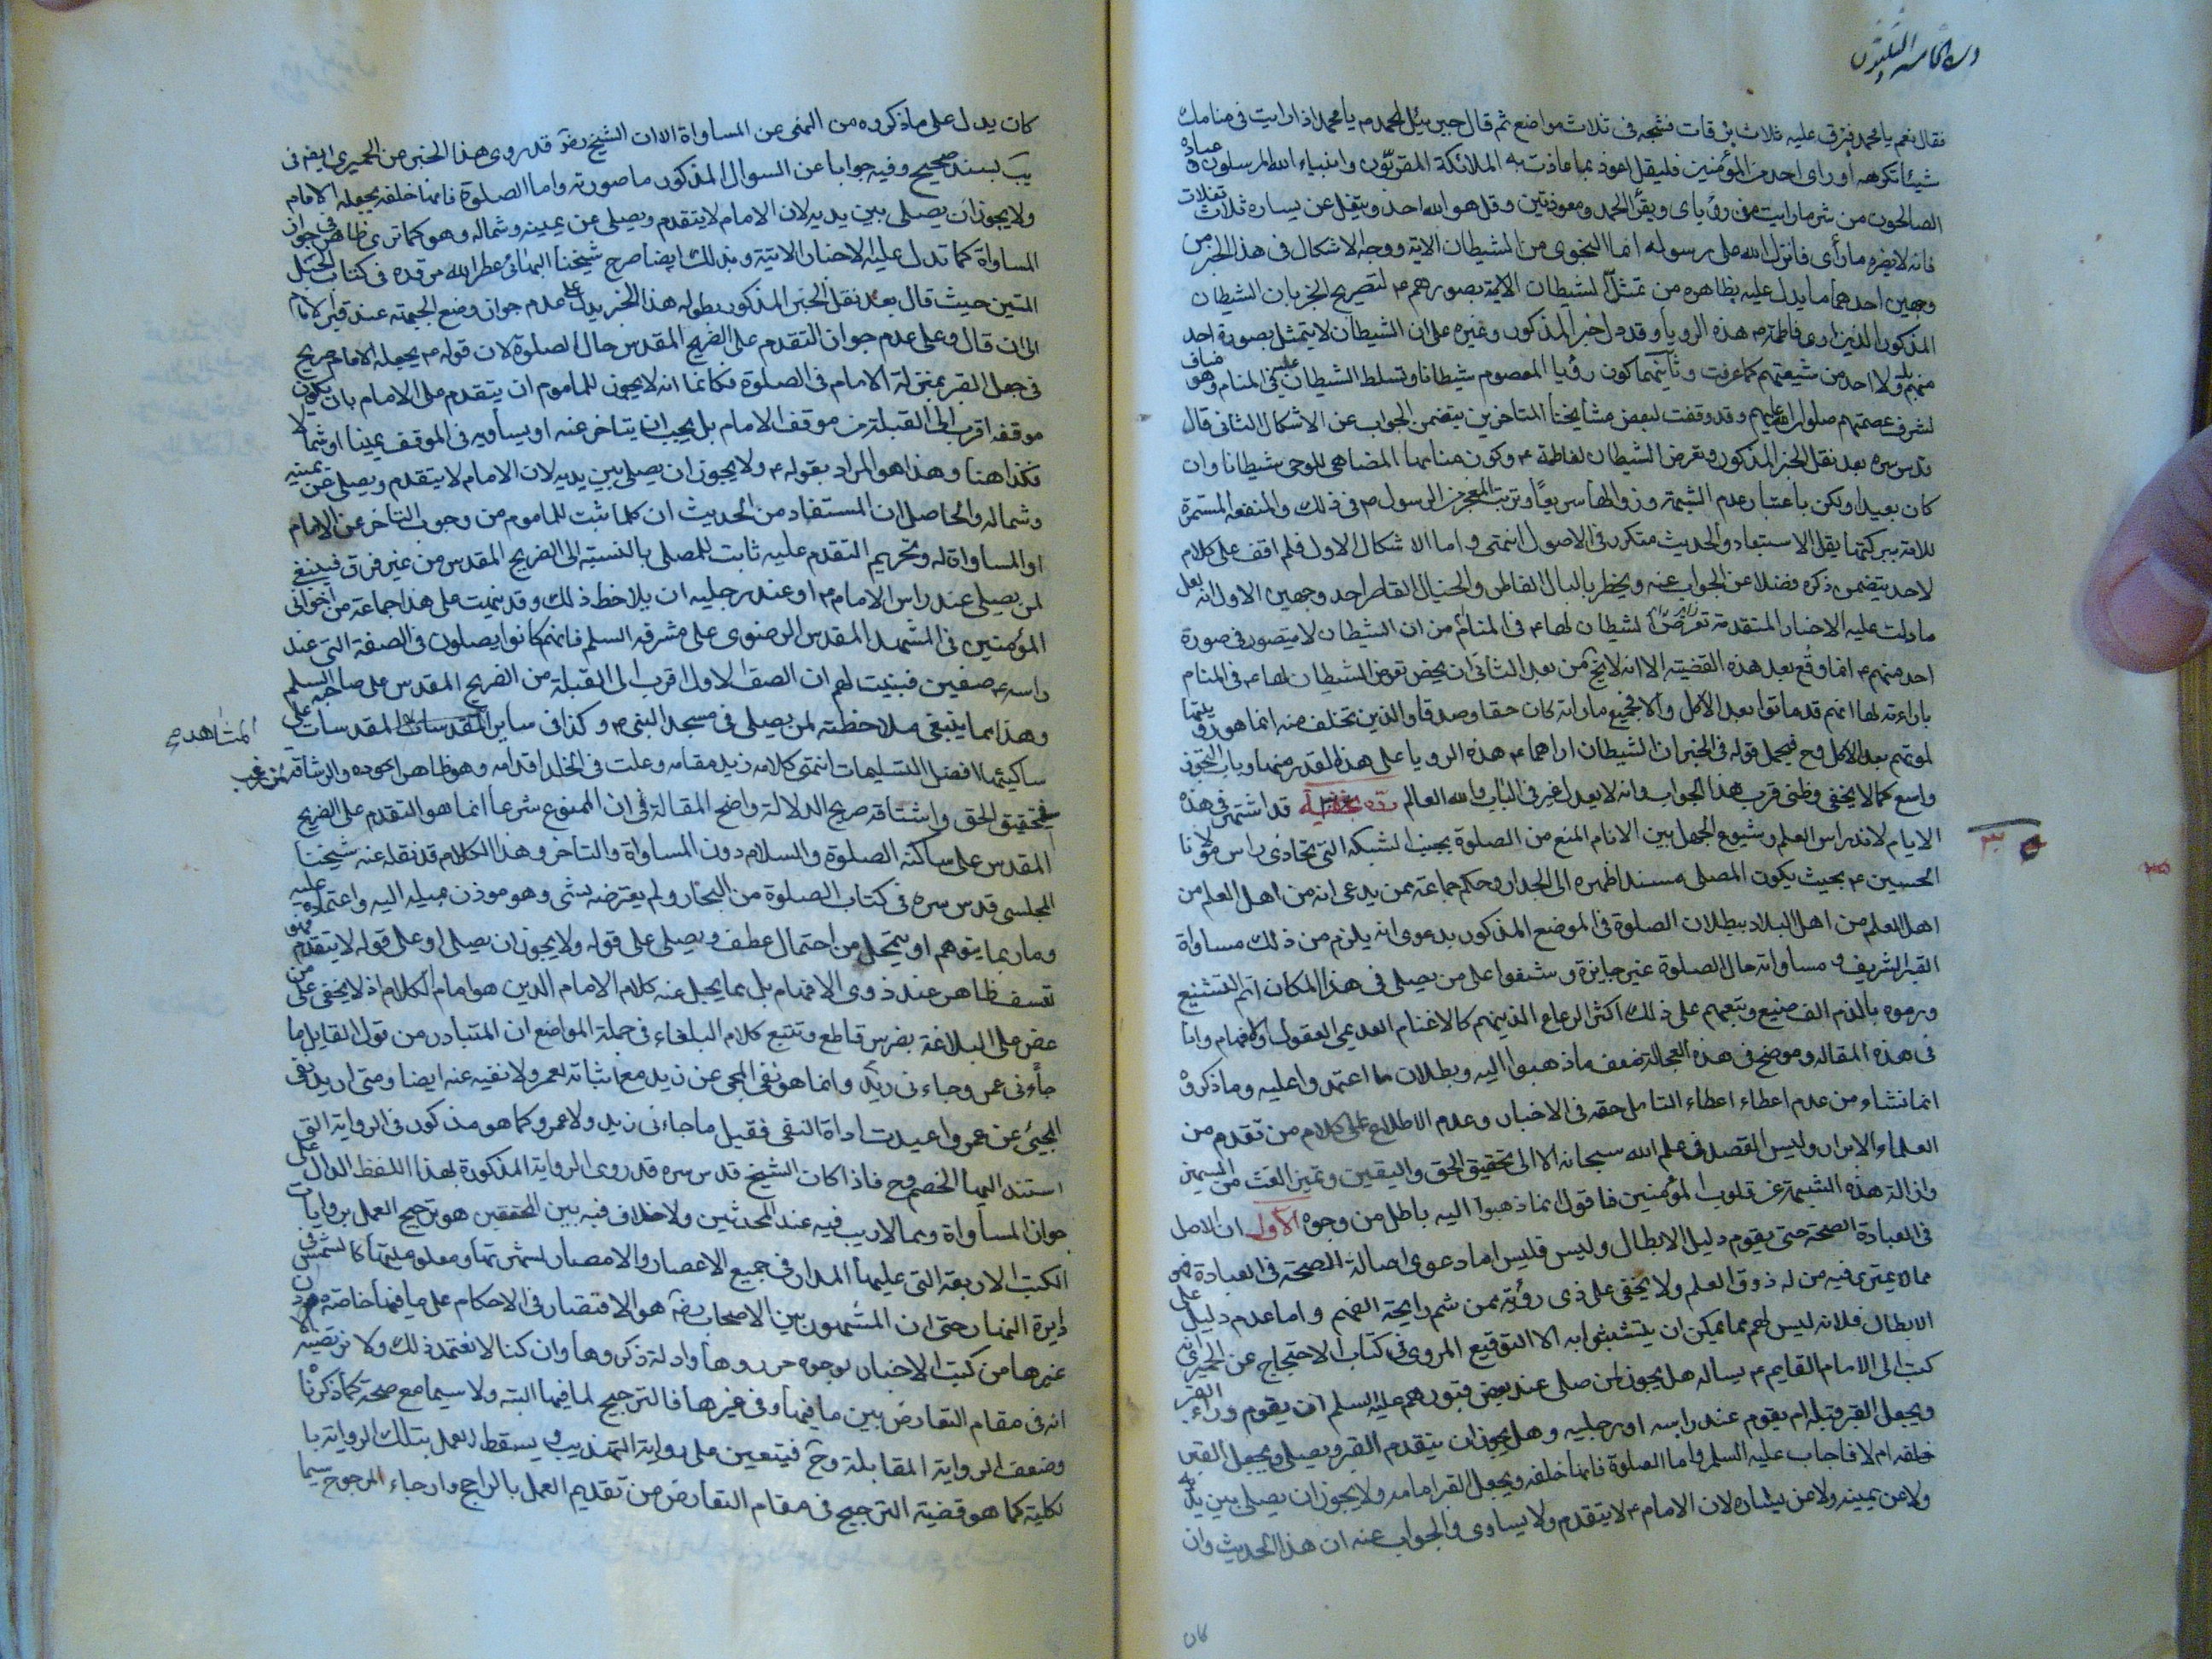 فقال نعم يا محمد فبزق عليه ثلاث بزقات فشجه في ثلاث مواضع ثم قال جبرئيل لمحمد ص يا محمد اذا رايت في منامك
شيئا تكرهه او راى احد من المؤمنين فليقل اعوذ بما عاذت به الملائكة المقربون وانبياء الله المرسلون و عباده
الصالحون من شر ما رايت من رؤياى ويقرأ الحمد ومعوذتين وقل هو الله احد ويتفل عن يساره ثلاث تفلات
فانه لا يضره ما رأى فانزل الله على رسوله انما النجوى من الشيطان الاية ووجه الاشكال في هذا الخبر من
وجهين احدهما ما يدل عليه بظاهره من تمثل الشيطان الاية بصورهم ع لتصريح الخبر بان الشيطان
المذكور الذي ارى فاطمة ع هذه الرويا وقد دل خبر المذكور وغيره على ان الشيطان لا يتمثل بصورة احد
منهم بل ولا احد من شيعتهم كما عرفت وثانيهما كون رؤيا المعصوم شيطانا وتسلط الشيطان عليه في المنام وهو مناف
لشرف عصمتهم صلوات الله عليهم وقد وقفت لبعض مشايخنا المتاخرين يتضمن الجواب عن الاشكال الثاني قال
قدس سره بعد نقل الخبر المذكور وتعرض الشيطان لفاطمة ع وكون منامها المضاهى للوحى شيطانا وان
كان بعيدا ولكن باعتبار عدم الشيمة وزوالها سريعا وترتب المعجز من الرسول ص في ذلك والمنفعه المستمرة
للامة ببركتها يقل الاستبعاد والحديث متكرر في الاصول انتهى و اما الاشكال الاول فلم اقف على كلام
لاحد يتضمن ذكره فضلا عن الجواب عنه ويخطر بالبال الفاطر والخيال القاصر احد وجهين الاول انه لعل
ما دلت عليه الاخبار المتقدمة تعرض الشيطان لها ع في المنام من ان الشيطان لا يتصور في صورة
احد منهم ع انما وقع بعد هذه القضية الا انه لا يخ من بعد الثاني ان يخص تعرض الشيطان لها ع في المنام
باراءته لها انهم قد ماتوا بعد الاكل والا فجميع ما راته كان حقا وصدقا والذين تخلف منه انما هو رؤيتها
لموتهم بعد الاكل وح فيحمل قوله في الخبر ان الشيطان اراهما ع هذه الرويا على هذه القدر منها وباب التجوز
واسع كما لا يخفى وظنى قرب هذا الجواب وانه لا يعدل غير في الباب والله العالم قد اشتهر في هذه
الايام لاندراس العلم وشيوع الجهل بين الانام المنع من الصلوة بجنب الشبكه التي تحاذى راس مولانا
الحسين ع بحيث يكون المصلى مسندا ظهره الى الجدار وحكم جماعة ممن يدعى انه من اهل العلم من
اهل العلم من اهل البلاد ببطلان الصلوة في الموضع المذكور بدعوى انه يلزم من ذلك مساواة
القبر الشريف و مساواته حال الصلوة غير جايزة و شنعوا على من يصلى في هذا المكان اتم التشنيع
ورموه بالذم الفضيع وتبعهم على ذلك اكثر الرعاع الذينهم كالاغنام العديمى العقول والافهام وانا
في هذه المقاله وموضح في هذه العجالة ضعف ما ذهبوا اليه وبطلان ما اعتمدوا عليه وما ذكروه
انما نشاء من عدم اعطاء اعطاء التامل حقه في الاخبار وعدم الاطلاع على كلام من تقدم من
العلماء الابرار وليس المقصد في علم الله سبحانه الا الى تحقيق الحق واليقين وتميز الغث من السمين
وازالة هذه الشبهة عن قلوب المؤمنين فاقول انما ذهبوا اليه باطل من وجوه الاول ان الاصل
في العبادة الصحة حتى يقوم دليل الابطال وليس فليس اما دعوى اصالة الصحة في العبادة فهو
مما لا يمترى فيه من له ذوق العلم ولا يخفى على ذى روية ممن شم رايحة الفهم و اما عدم دليل على
الابطال فلانه ليس لهم مما يمكن ان يتشبثوا به الا التوقيع المروى في كتاب الاحتجاج عن الحميرى انه
كتب الى الامام القايم ع يساله هل يجوز لمن صلى عند بعض قبورهم عليه السلم ان يقوم وراء القبر
ويجعل القبر قبلة ام يقوم عند راسه او رجليه وهل يجوز ان يتقدم القبر ويصلى ويجعل القبر
خلفه ام لا فاجاب عليه السلم واما الصلوة فانها خلفه ويجعل القبر امامه ولا يجوز ان يصلى بين يديه
ولا عن يمينه ولا عن يساره لان الامام ع لا يتقدم ولا يساوى والجواب عنه ان هذا الحديث وان
كان
كان يدل على ما ذكروه من النهى عن المساواة الا ان الشيخ رضه قد روى هذا الخبر من الحميرى ايض في
يب بسند صحيح وفيه جوابا عن السوال المذكور ما صورته واما الصلوة فانها خلفه يجعله الامام
ولا يجوز ان يصلى بين يديه لان الامام لا يتقدم ويصلى عن يمينه وشماله وهو كما ترى ظاهر في جواز
المساواة كما تدل عليه الاخبار الاتية وبذلك ايضا صرح شيخنا البهائى عطر الله مرقده في كتاب الحبل
المتين حيث قال بعد نقل الخبر المذكور بطوله هذا الخبر يدل على عدم جواز وضع الجبهة عند قبر الامام
الى ان قال وعلى عدم جواز التقدم على الضريح المقدس حال الصلوة لان قوله ع يجعله الامام صريح
في جعل القبر بمنزلة الامام في الصلوة فكانما انه لا يجوز للماموم ان يتقدم على الامام بان يكون
موقفه اقرب الى القبلة من موقف الامام بل يجب ان يتاخر عنه او يساويه في الموقف يمينا او شمالا
فكذا هنا وهذا هو المراد بقوله ع ولا يجوز ان يصلى بين يديه لان الامام لا يتقدم ويصلى عن يمينه
وشماله والحاصل ان المستفاد من الحديث ان كلما ثبت للماموم من وجوب التاخر عن الامام
او المساواة له وتحريم التقدم عليه ثابت للمصلى بالنسبة الى الضريح المقدس من غير فرق فينبغى
لمن يصلى عند راس الامام ع او عند رجليه ان يلاحظ ذلك وقد نبهت على هذا جماعة من اخوانى
المؤمنين في المشهد المقدس الرضوى على مشرفه السلم فانهم كانوا يصلون في الصفة التى عند
راسه ع صفين فبينت لهم ان الصف الاول اقرب الى القبلة من الضريح المقدس على صاحبه السلم
وهذا مما ينبغى ملاحظته لمن يصلى في مسجد النبى ص وكذا في ساير المقدسات المقدسات على
المشاهد صح
ساكنيها افضل التسليمات انتهى كلامه زيد مقامه وعلت في الخلد اقدامه وهو ظاهر الجوده والرشاقه من غير
تحقيق الحق واشتاقه صريح الدلالة واضح المقالة في ان الممنوع شرعا انما هو التقدم على الضريح
المقدس على ساكنه الصلوة والسلام دون المساواة والتاخر وهذا الكلام قد نقله عنه شيخنا
المجلسى قدس سره في كتاب الصلوة من البحار ولم يعترضه بشى وهو موذن بميله اليه واعتماده عليه
وما ربما يتوهم او يتمحل من احتمال عطف ويصلى على قوله ولا يجوز ان يصلى او على قوله لا يتقدم فهو
تعسف ظاهر عند ذوى الافهام بل مما يجل عنه كلام الامام الذين هو امام الكلام اذ لا يخفى على من
عض على البلاغة بضرس قاطع وتتبع كلام البلغاء في جملة المواضع ان المتبادر من قول القايل ما
جاءنى عمر وجاءنى زيد وانما هو نفى المجى عن زيد مع اثباته لعمر ولا نفيه عنه ايضا ومتى اريد نفى
المجيئ عن عمر واعيدت اداة النفى فقيل ما جاءنى زيد ولا عمرو كما هو مذكور في الرواية التى
استند اليها الخصم وح فاذا كان الشيخ قدس سره قد روى الرواية المذكورة بهذا اللفظ الدال على
جواز المساواة ومما لا ريب فيه عند المحدثين ولا خلاف فيه بين المحققين هو ترجيح العمل بروايات
الكتب الاربعة التى عليها المدار في جميع الاعصار والامصار لشهرتها ومعلوميتها كالشمس في
دايرة النهار حتى ان المشهور بين الاصحاب رضه هو الاقتصار في الاحكام على ما فيها خاصة دون
غيرها من كتب الاخبار لوجوه حرروها وادلة ذكروها وان كنا لا نعتمد ذلك ولا نرتضيه الا
انه في مقام التعارض بين ما فيها وفي غيرها فالترجيح لما فيها البته ولا سيما مع صحة كما ذكرنا
وضعف الرواية المقابلة وح فيتعين على رواية التهذيب ويسقط العمل بتلك الرواية با
لكلية كما هو قضية الترجيح في مقام التعارض من تقديم العمل بالراجح وارجاء المرجوح سيما